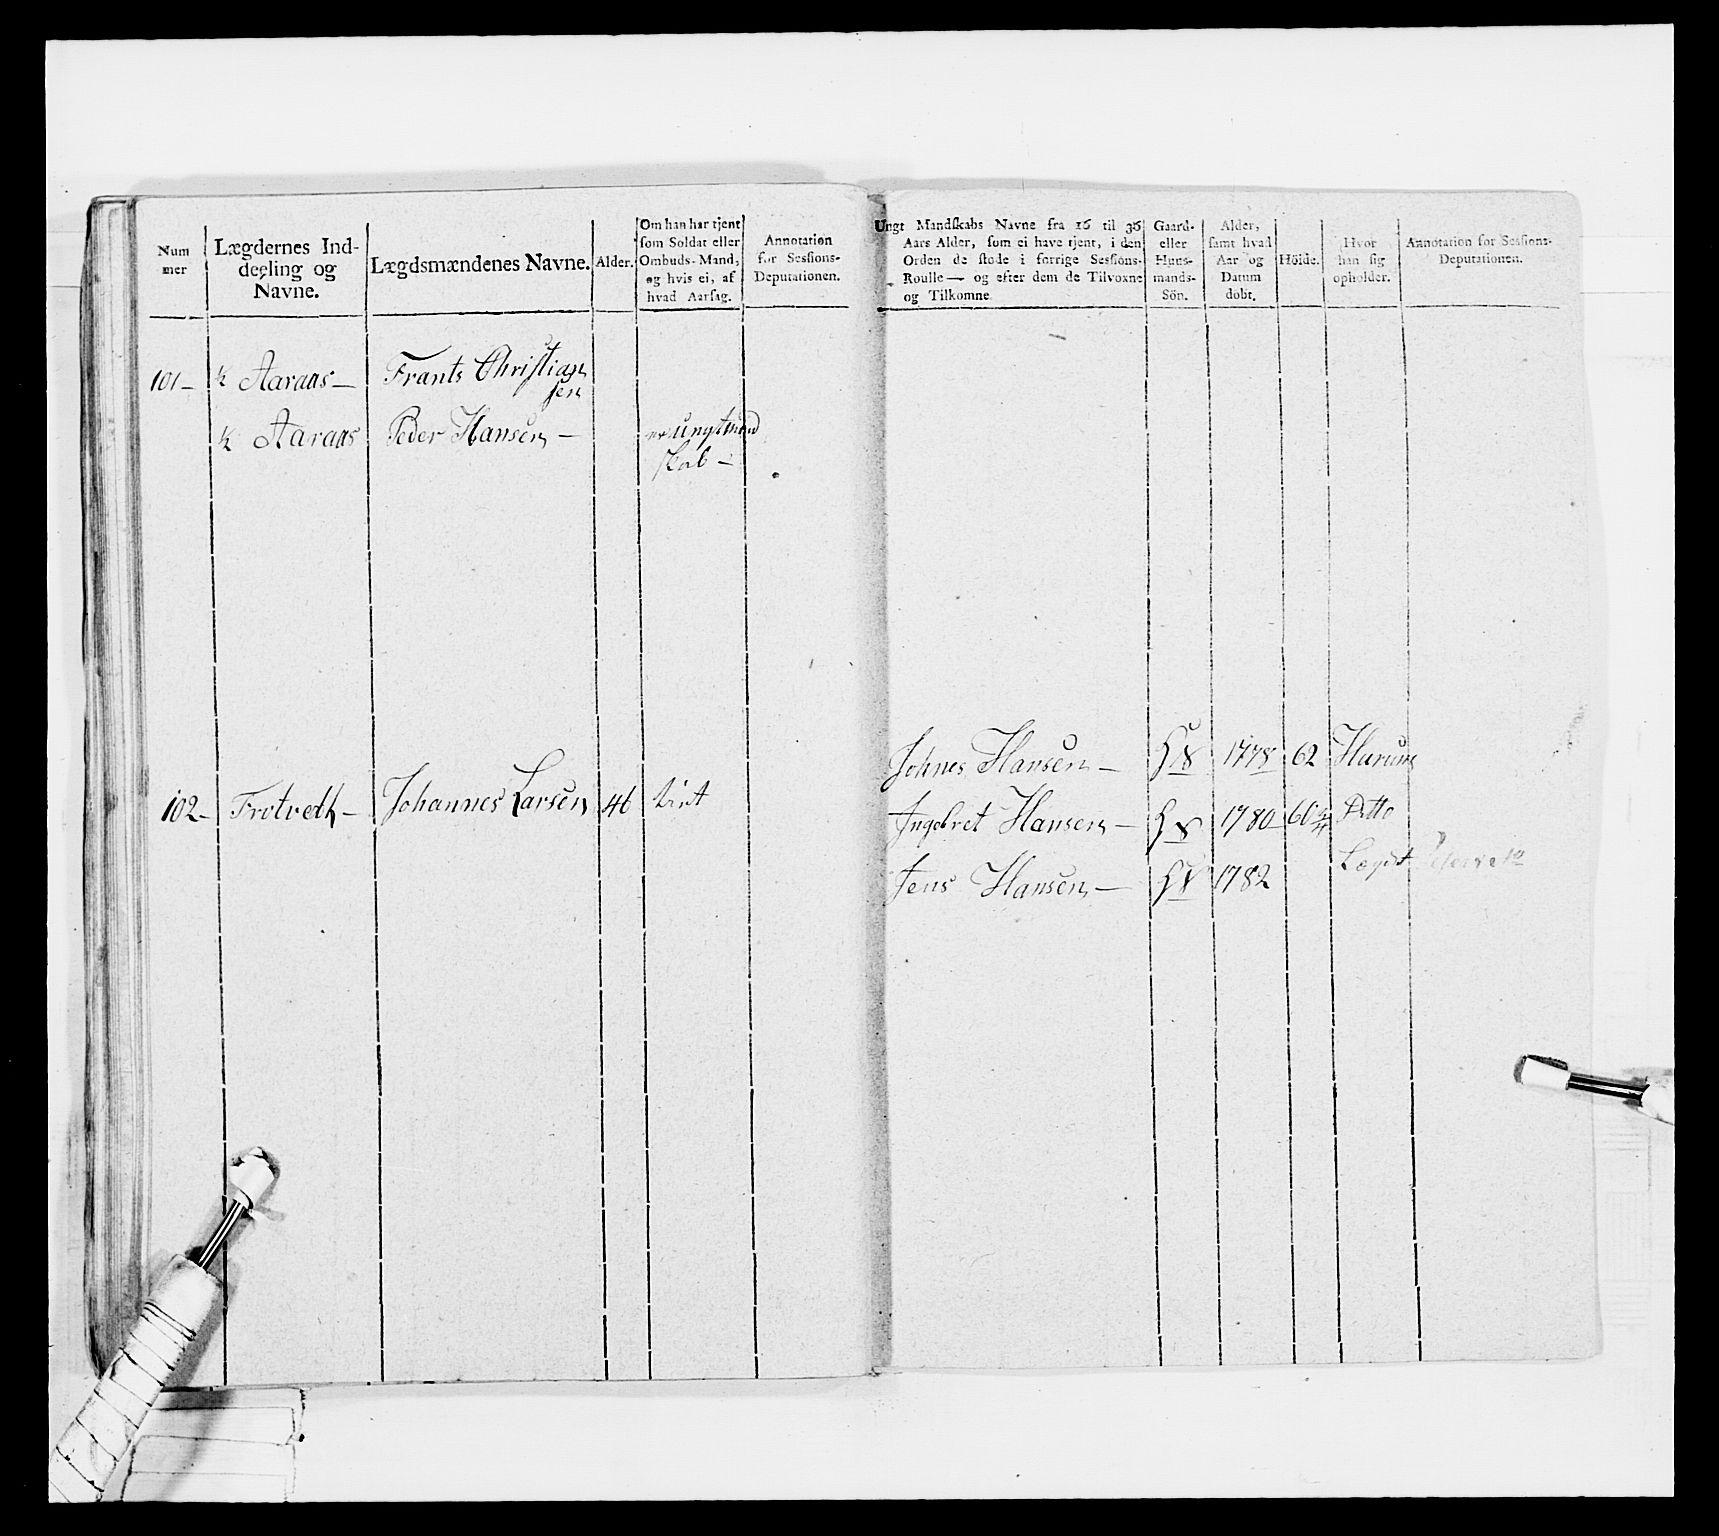 Num
mer
Lægdernes Ind-
deeling og
Navne.
Lægdsmændenes Navne.
Alder.
Om han har tjent
som Soldat eller
Ombuds-Mand,
og hvis ei, af
hvad Aarsag.
Annotation
for Sessions-
Deputationen.
Ungt Mandskabs Navne fra 16 til 36
Aars Alder, som ei have tjent, i den
Orden de stode i forrige Sessions-
Roulle — og efter dem de Tilvoxne
og Tilkomne
Gaard-
eller
Huus-
mands-
Sön.
Alder,
samt hvad
Aar og
Datum
dobt.
Höide.
Hvor
han sig
opholder.
Annotation for Sessions-
Deputationen.
101 — ½ Aaraas — Frants Christian
sen
½ Aaraas Peder Hansen — er ungt mand
skab —
Johnes Hansen — 1778 62
102 — Trotveth — Johannes Larsen 46 tient
Ingebret Hansen — 1780 60 Ditto
Jens Hansen — 1782